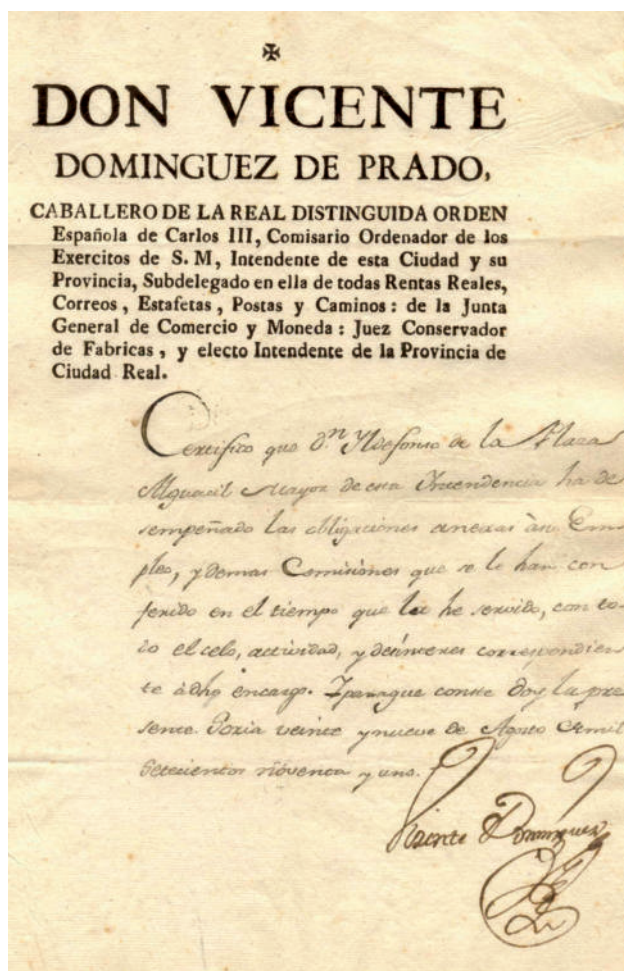 ✠
DON VICENTE
DOMINGUEZ DE PRADO,
CABALLERO DE LA REAL DISTINGUIDA ORDEN
Española de Carlos III, Comisario Ordenador de los
Exercitos de S. M, Intendente de esta Ciudad y su
Provincia, Subdelegado en ella de todas Rentas Reales,
Correos, Estafetas, Postas y Caminos: de la Junta
General de Comercio y Moneda: Juez Conservador
de Fabricas, y electo Intendente de la Provincia de
Ciudad Real.
Certifico que Dn Yldefonso de la Plaza
Alguacil mayor de esta Intendencia ha de
sempeñado las obligaciones anexas à su Em
pleo, y demas Comisiones que se le han con
ferido en el tiempo que la he servido, con to-
do el celo, actividad, y desinteres correspondien
te à dho encargo. Y para que conste doy la pre
sente Soria veinte y nueve de Agosto de mil
Setecientos noventa y uno.
Vicente Dominguez